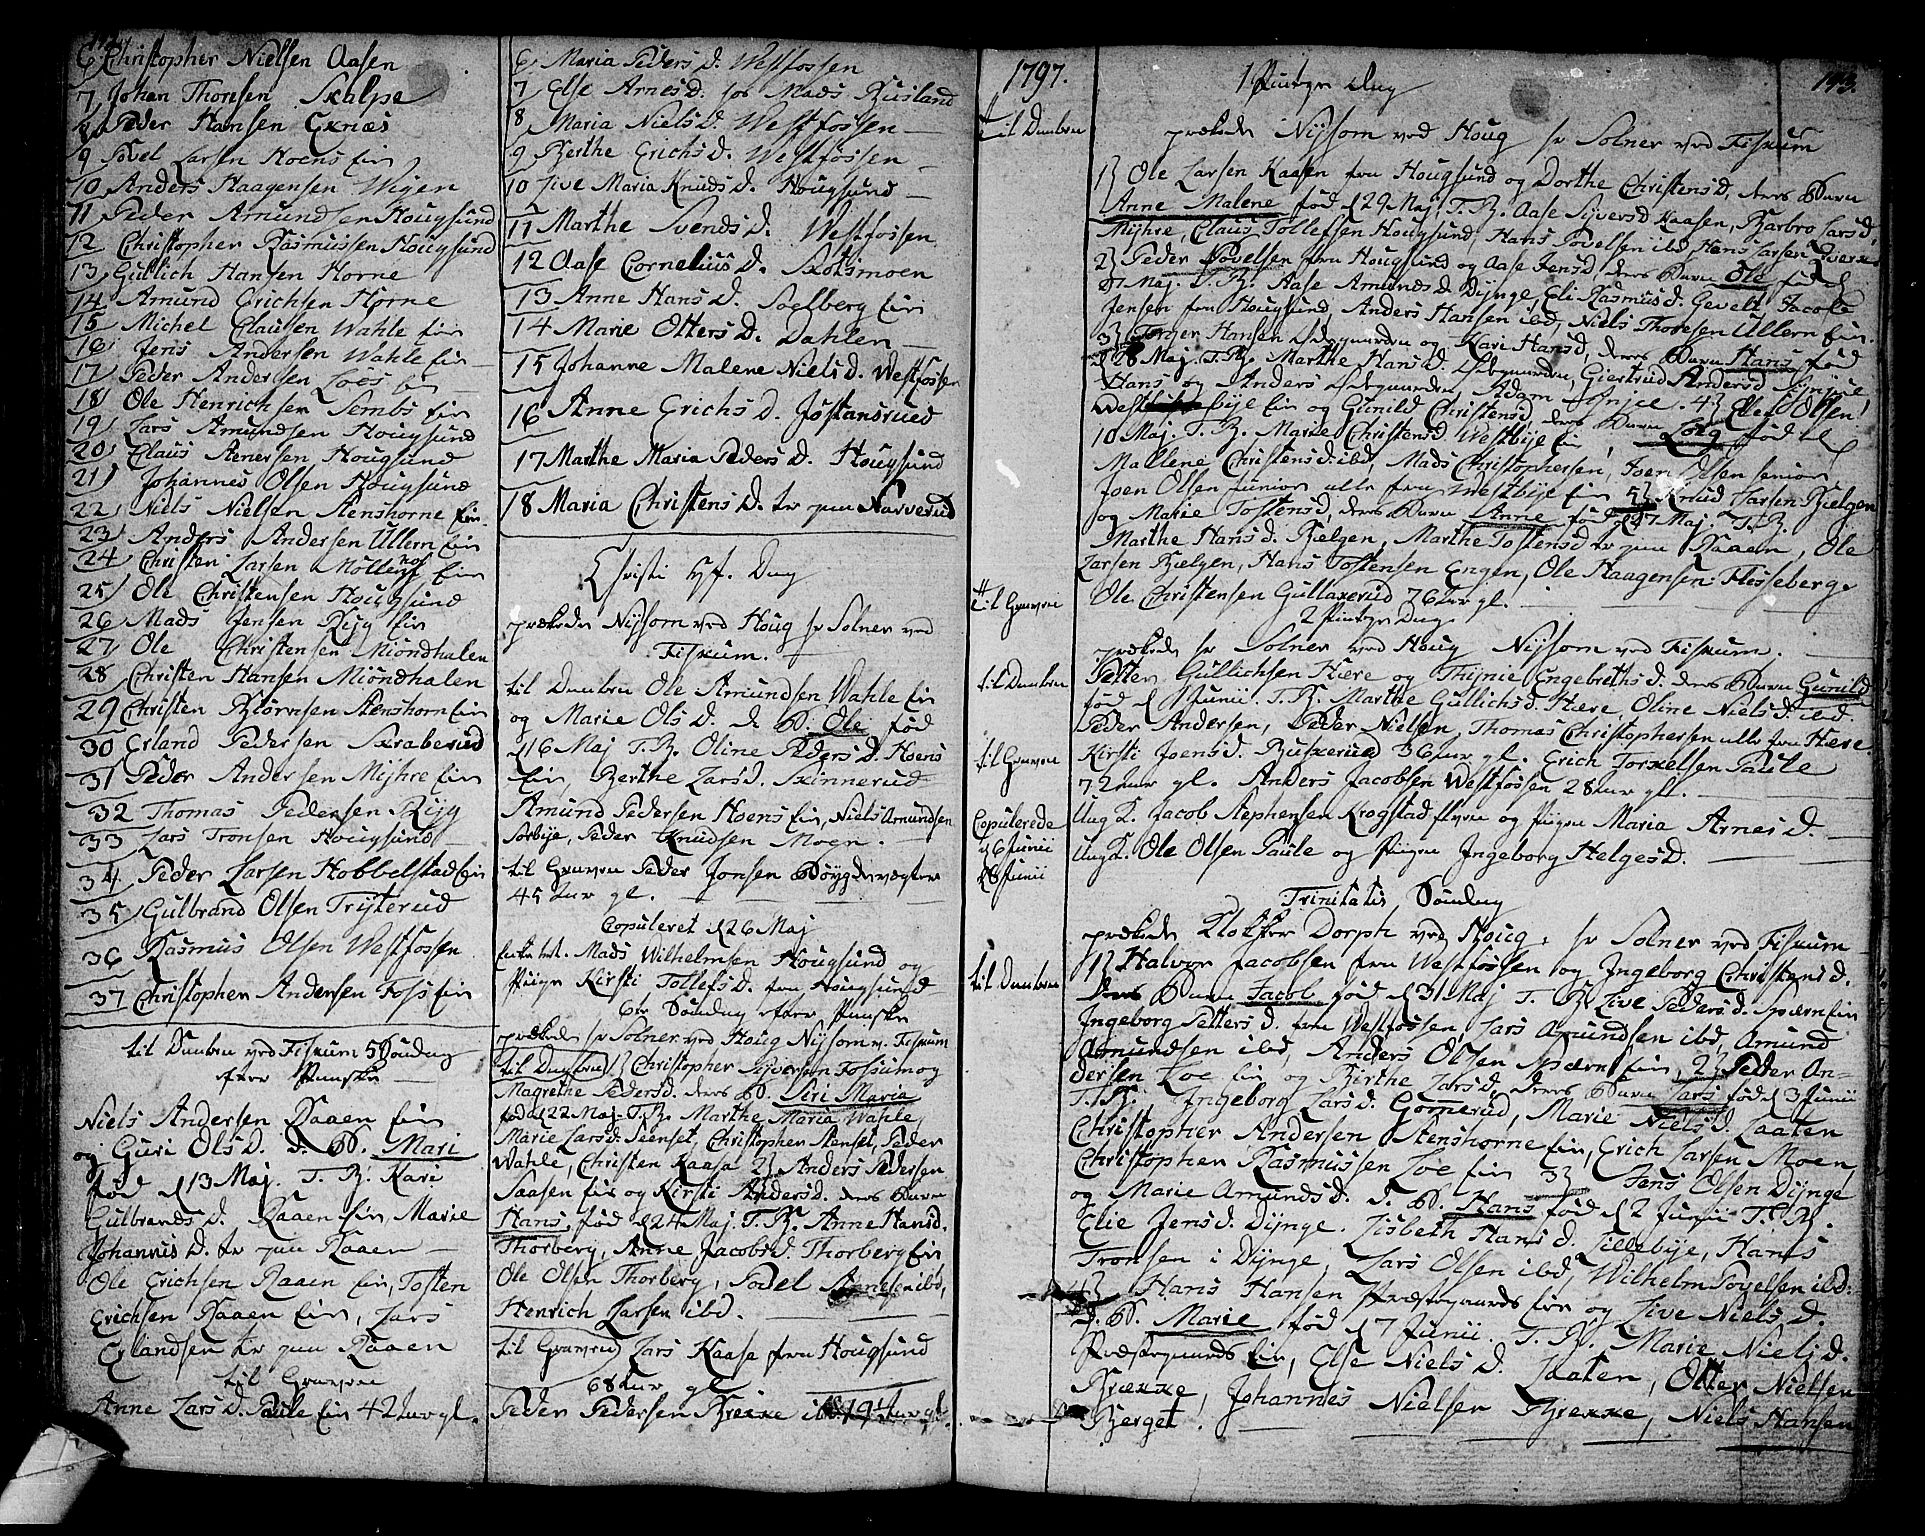 6 Christopher Nielsen Aasen
7 Johan Thoresen Skalpe
8 Peder Hansen Exnæs
9 Povel Larsen Hoens Ein
10 Anders Haagensen Wigen
11 Peder Amundsen Hougsund
12 Christopher Rasmussen Hougsund
13 Gullich Hansen Horne
14 Amund Erichsen Horne
15 Michel Clausen Wahle Ein
16 Jens Andersen Wahle Ein
17 Peder Andersen Loes Ein
18 Ole Henrichsen Sembs Ein
19 Lars Amundsen Hougsund
20 Claus Stenersen Hougsund
21 Johannes Olsen Hougsund
22 Niels Nielsen Stenshorne Ein
23 Anders Andersen Ullern Ein
24 Christen Larsen Møllenhof Ein
25 Ole Christensen Hougsund
26 Mads Jensen Ryg Ein
27 Ole Christensen Miøndhalen
28 Christen Hansen Miøndhalen
29 Christen Biørnsen Stenshorn Ein
30 Erland Pedersen Skraberud
31 Peder Andersen Myhre Ein
32 Thomas Pedersen Ryg
33 Lars Tronsen Hougsund
34 Peder Larsen Hobbelstad Ein
35 Gulbrand Olsen Tryterud
36 Rasmus Olsen Westfossen
37 Christopher Andersen Foss Ein
til Daaben ved Fiskum 5 Søndag
efter Paaske
Niels Andersen Kaaen Ein
og Guri Olsd. d. B. Mari
fød d 13 Maj. T. B. Kari
Gulbrandsd. Kaaen Ein, Marie
Johannisd. tr paa Kaaen
Ole Erichsen Kaaen Ein, Tosten
Erichsen Kaaen Ein, Lars
Erlandsen tr paa Kaaen
til Graven
Anne Larsd. Paule Ein 42 aar gl.
6 Maria Pedersd. Westfossen
7 Else Arnesd. hos Mads Rusland
8 Maria Nielsd. Westfossen
9 Berthe Erichsd. Westfossen
10 Live Maria Knudsd. Hougsund
11 Marthe Svendsd. Westfossen
12 Aase Corneliusd. Skotsmoen
13 Anne Hansd. Soelberg Ein
14 Marie Ottersd. Dahlen
15 Johanne Malene Nielsd. Westfossen
16 Anne Erichsd. Jostansrued
17 Marthe Maria Pedersd. Hougsund
18 Maria Christensd. tr paa Narverud
Christi Hf. Dag
prækede Nyssom ved Houg hr Solner ved
Fiskum.
til Daaben Ole Amundsen Wahle Ein
og Marie Olsd. d. B. Ole fød
d 16 Maj T. B. Oline Pedersd. Hoens
Ein, Berthe Larsd. Skinnerud
Amund Pedersen Hoens Ein, Niels Amundsen
Sørbye, Peder Knudsen Moen.
til Graven Peder Jonsen Bøygdevægter
45 aar gl.
Copuleret d 26 Maj
Mads Wilhelmsen Hougsund og
Pigen Kirsti Tollefsd. fra Hougsund
6te Søndag efter Paaske
prækede hr Solner ved Houg Nyssom v. Fiskum
til Daaben 1) Christopher Syversen Fossum og
Magrethe Pedersd. deres B. Siri Maria
fød d 22 Maj. T. B. Marthe Maria Wahle,
Marie Larsd. Stenset, Christopher Stenset, Peder
Wahle, Christen Kaasa 2) Anders Pedersen
Saasen Ein og Kirsti Andersd. deres Barn
Hans, fød d 24 Maj. T. B. Anne Hansd.
Thorberg, Anne Jacobsd. Thorberg Ein
Ole Olsen Thorberg, Povel Arnesen ibd,
Henrich Larsen ibd.
til Graven Lars Kaase fra Hougsund
68 aar gl
Peder Pedersen Brekke ibd 19 aar gl.
1797.
til Daaben
til Graven
til Daaben
til Graven
Copulerede
d 6 Junii
d 8 Junii
til Daaben
143.
1 Pintse Dag
prækede Nyssom ved Houg hr Solner ved Fiskum
1) Ole Larsen Kaasen fra Hougsund og Dorthe Christensd, deres Barn
Anne Malene fød d 29 Maj. T. B. Aase Syversd Kaasen, Barbro Larsd,
Myhre, Claus Tollefsen Hougsund, Hans Povelsen ibd, Hans Larsen Qverke
2) Peder Povelsen fra Hougsund og Aase Jensd, deres Barn Ole fød d
Maj. T. B. Aase Amundsd Dynge, Eli Rasmusd. Gevelt, Jacob
Jensen fra Hougsund, Anders Hansen ibd, Niels Thoresen Ullern Ein.
3) Torger Hansen og Kari Hansd, deres Barn Hans fød
d 28 Maj. T. B. Marthe Hansd. Giertrud Andersd Lynje,
Hans og Anders Adam Lynjee. 4) Elend Olsen
Westbye Ein og Gunild Christensd, deres Barn Loeg fød d
10 Maj. T. B. Marie Christensd Westbye Ein,
Mallene Christensd. ibd, Mads Christophersen, Joen Olsen senior
Joen Olsen junior alle fra Westbye Ein 5) Knud Larsen Bielgen
og Marie Tostensd, deres Barn Anne fød d 27 Maj. T. B.
Marthe Hansd. Bielgen, Marthe Tostensd tr paa Kaaen, Ole
Larsen Bielgen, Hans Tostensen Engen, Ole Haagensen Flesseberg.
Ole Christensen Gullaxerud 76 aar gl.
2 Pintse Dag
prækede hr Solner ved Houg Nyssom ved Fiskum.
Petter Gullichsen Hære og Thynie Engebrethsd. deres Barn Gunild
fød d 1 Junii. T. B. Marthe Gullichsd. Hære, Oline Nielsd. ibd.
Peder Andersen, Peder Nielsen, Thomas Christophersen alle fra Hære
Kirsti Joensd. Buskerud 36 aar gl. Erich Torkelsen Paule
72 aar gl. Anders Jacobsen Westfossen 28 aar gl.
Ung K. Jacob Stephensen Krogstadflyen og Pigen Maria Arnesd.
Ung K. Ole Olsen Paule og Pigen Ingeborg Helgesd.
Trinitatis Søndag
prækede Klokker Dorph ved Houg, hr Solner ved Fiskum
1) Halvor Jacobsen fra Westfossen og Ingeborg Christensd.
deres Barn Jacob fød d 31 Maj T. B. Live Pedersd. Spærn Ein
Ingeborg Pettersd. fra Westfossen, Lars Amundsen ibd, Amund
Asmundsen ibd, Anders Olsen Spærn Ein, 2) Peder An-
dersen Loe Ein og Birthe Larsd, deres Barn Lars fød d 3 Junii
T. B. Ingeborg Larsd. Gomerud, Marie Nielsd. Laaten
Christopher Andersen Stenshorne Ein, Erich Larsen Moen,
Christopher Rasmussen Loe Ein 3) Jens Olsen Dynge
og Marie Amundsd. d. B. Hans fød d 2 Junii T. B.
Elie Jensd. Dynge. Lisbeth Hansd. Lillebye, Hans
Tronsen i Dynge, Lars Olsen ibd, Wilhelm Povelsen ibd:
4) Hans Hansen Præstegaards Ein og Live Nielsd.
d. B. Marie fød d 7 Junii. T. B. Marie Nielsd.
Præstegaards Ein, Else Nielsd. Laaten, Otter Nielsen
Brekke, Johannes Nielsen Brekke, Niels Hansen
Berget.